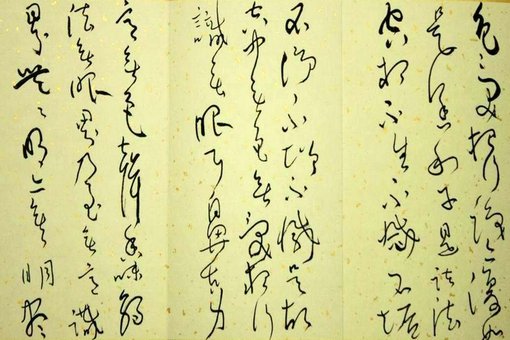 色受想行識亦復如
是舍利子是諸法
空相不生不滅不垢
不淨不增不減是故
空中無色無受想行
識無眼耳鼻舌身
意無色聲香味觸
法無眼界乃至無意識
界無々明亦無々明盡